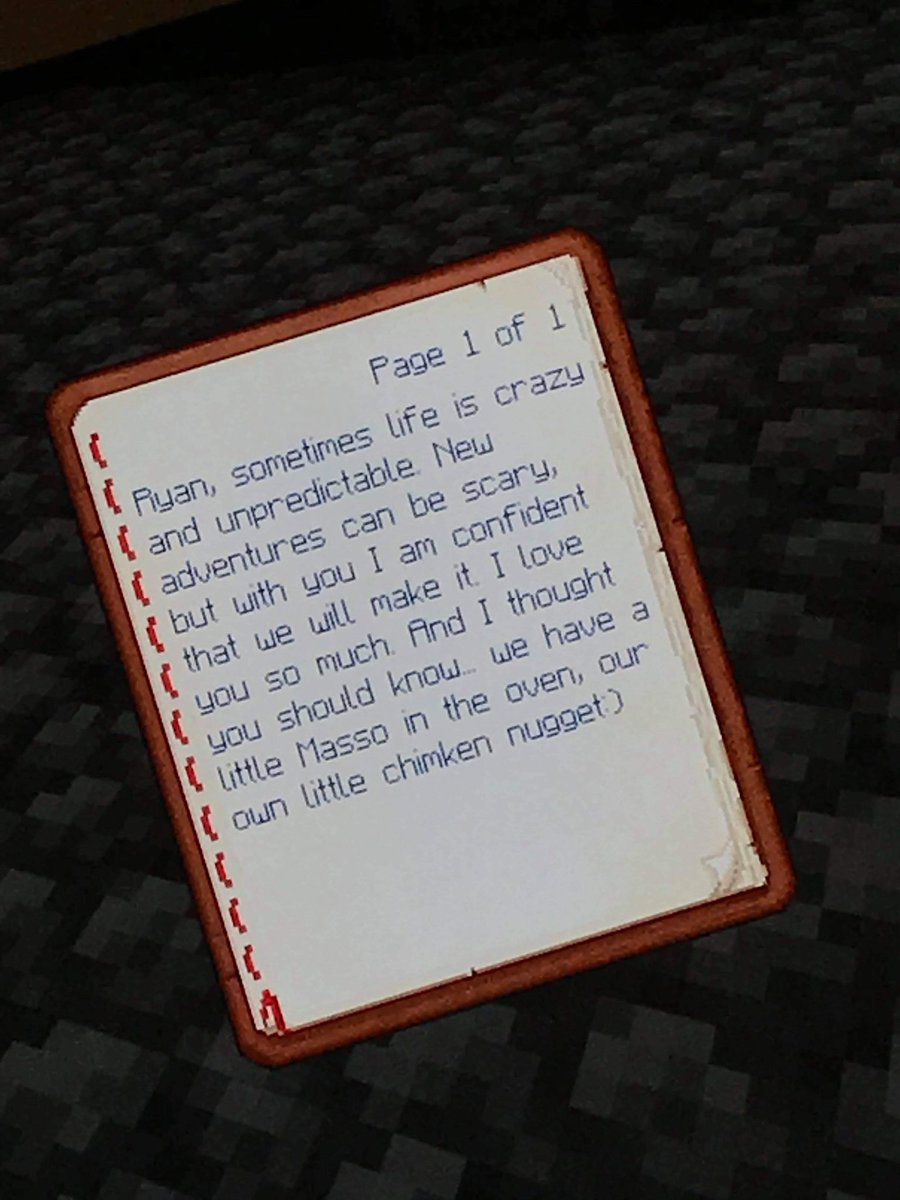 Page 1 of 1
Ryan, sometimes life is crazy
and unpredictable. New
adventures can be scary,
but with you I am confident
that we will make it. I love
you so much. And I thought
you should know... we have a
little Masso in the oven, our
own little chimken nugget:)